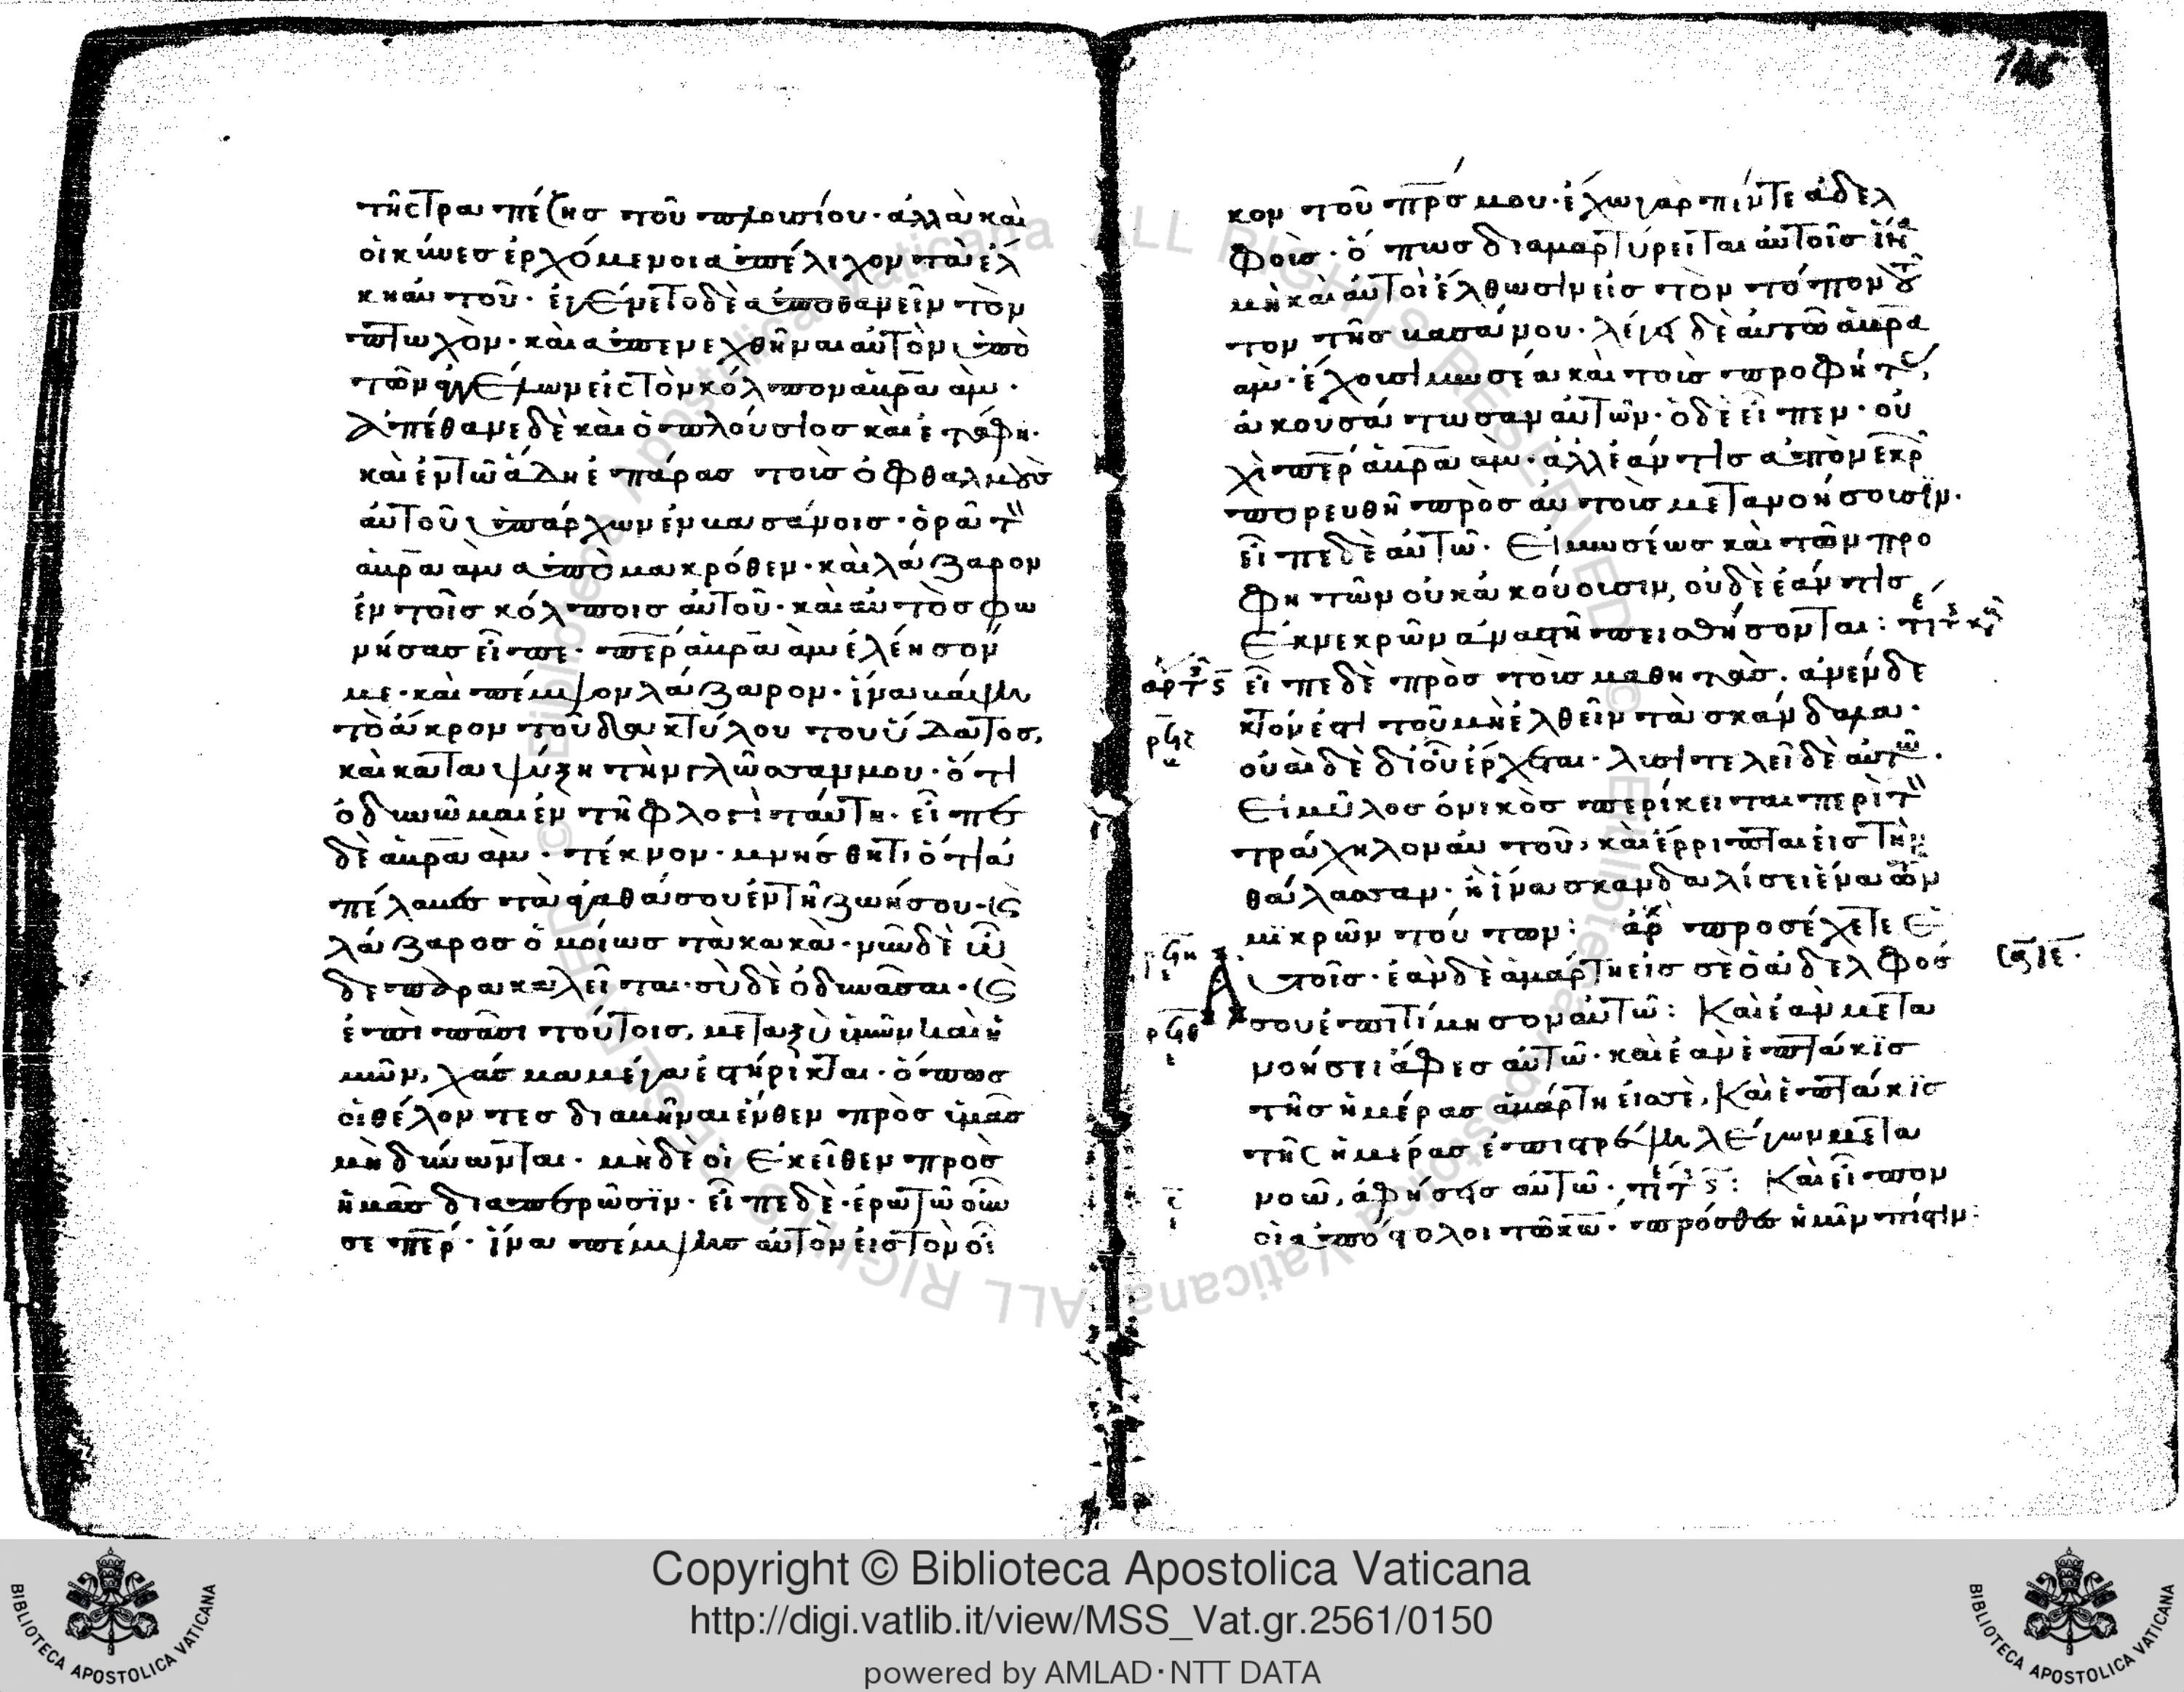 τῆς τραπέζησ τοῦ πλουσίου· ἀλλὰ καὶ
οἱ κύνεσ ἐρχόμενοι ἀπέλιχον τὰ ἕλ
κη αὐτοῦ· ἐγένετο δὲ ἀποθανεῖν τὸν
πτωχὸν· καὶ ἀπενεχθῆναι αὐτὸν ὑπὸ
τῶν ἀγγέλων εἰς τὸν κόλπον ἀβρααὰμ·
Ἀπέθανε δὲ καὶ ὁ πλούσιοσ καὶ ἐτάφη·
καὶ ἐν τῶ ἅδη ἐπάρασ τοὺσ ὀφθαλμοὺσ
αὐτοῦ ὑπάρχων ἐν βασάνοισ· ὁρᾶ τὸν
ἀβρααὰμ ἀπὸ μακρόθεν· καὶ λάζαρον
ἐν τοῖσ κόλποισ αὐτοῦ· καὶ αὐτὸσ φω
νήσασ εἶπε· περ ἀβρααὰμ ἐλέησόν
με· καὶ πέμψον λάζαρον· ἵνα βάψη
τὸ ἄκρον τοῦ δακτύλου του ὕδατοσ,
καὶ καταψύξη τὴν γλῶσσαν μου· ὅτι
ὀδυνῶμαι ἐν τῆ φλογὶ ταύτη· εἶπε
δὲ ἀβρααὰμ· τέκνον· μνήσθητι ὅτι ἀ
πέλαβες τὰ ἀγαθά σου ἐν τῆ ζωή σου· καὶ
λάζαροσ ὁμοίωσ τὰ κακὰ· νῦν δὲ ὧ
δε παρακαλεῖται· σὺ δὲ ὀδυνᾶσαι· καὶ
ἐπὶ πᾶσι τούτοισ, μεταξὺ ὑμῶν καὶ ἡ
μῶν, χάσμα μέγα ἐστήρικται· ὅπωσ
οἱ θέλοντεσ διαβῆναι ἔνθεν πρὸσ ὑμᾶσ
μὴ δύνωνται· μὴδὲ οἱ ἐκεῖθεν πρὸσ
ἡμᾶσ διαπερῶσϊν· εἶπε δὲ· ἐρωτῶ οὖν
σε περ· ἵνα πέμψησ αὐτὸν εἰσ τὸν οἶ
κον τοῦ πρσ μου· ἔχω γὰρ πέντε ἀδελ
φοὺσ· ὅπωσ διαμαρτύρειται αὐτοῖσ ἵνα
μὴ καὶ αὐτοὶ ἔλθωσιν εἰσ τὸν τόπον τοῦ
τον τῆσ βασάνου· λέγει δὲ αὐτῶ ἀβρα
ὰμ· ἔχουσι μωσέα καὶ τοὺσ προφήτας,
ἀκουσάτωσαν αὐτῶν· ὁ δὲ εἶπεν· οὐ
χὶ περ ἀβρααὰμ· ἀλλ' ἐάν τισ ἀπὸ νεκρ
πορευθῆ πρὸσ αὐτοὺσ μετανοήσουσιν.
εἶπε δὲ αὐτῶ· Εἰ μωσέωσ καὶ τῶν προ
φητῶν οὐκ ἀκούουσιν, οὐδὲ ἐάν τισ
ἐκ νεκρῶν ἀναστῆ πεισθήσονται:
εἶπε δὲ πρὸσ τοὺσ μαθητὰσ. ἀνένδε
κτόν ἐστι τοῦ μὴ ἐλθεῖν τὰ σκάνδαλα·
οὐαὶ δὲ δι' οὗ ἔρχεται· λυσιτελεῖ δὲ αὐτῶ.
Εἰ μῦλοσ ὀνικὸσ περίκειται περὶ τὸν
τράχηλον αὐτοῦ, καὶ ἔρριπται εἰσ τὴν
θάλασσαν· ἢ ἵνα σκανδαλίσει ἕνα τῶν
μϊκρῶν τούτων: ἀρχ προσέχετε ἑ
αυτοῖσ· ἐὰν δὲ ἁμάρτη εἰσ σὲ ὁ ἀδελφόσ
σου ἐπιτίμησον αὐτῶ: Καὶ ἐὰν μετα
νοήσει ἄφεσ αὐτῶ· καὶ ἐὰν ἑπτάκϊσ
τῆσ ἡμέρασ ἁμάρτη εἰσ σὲ, Καὶ ἑπτάκϊσ
τῆς ἡμέρασ ἐπιστρέψη λέγων μετα
νοῶ, ἀφήσεισ αὐτῶ· Καὶ εἶπον
οἱ ἀπόστολοι τῶ κω· πρόσθες ἡμῖν πίστιν:
Copyright © Biblioteca Apostolica Vaticana
http://digi.vatlib.it/view/MSS_Vat.gr.2561/0150
powered by AMLAD·NTT DATA
BIBLIOTECA APOSTOLICA VATICANA
BIBLIOTECA APOSTOLICA VATICANA